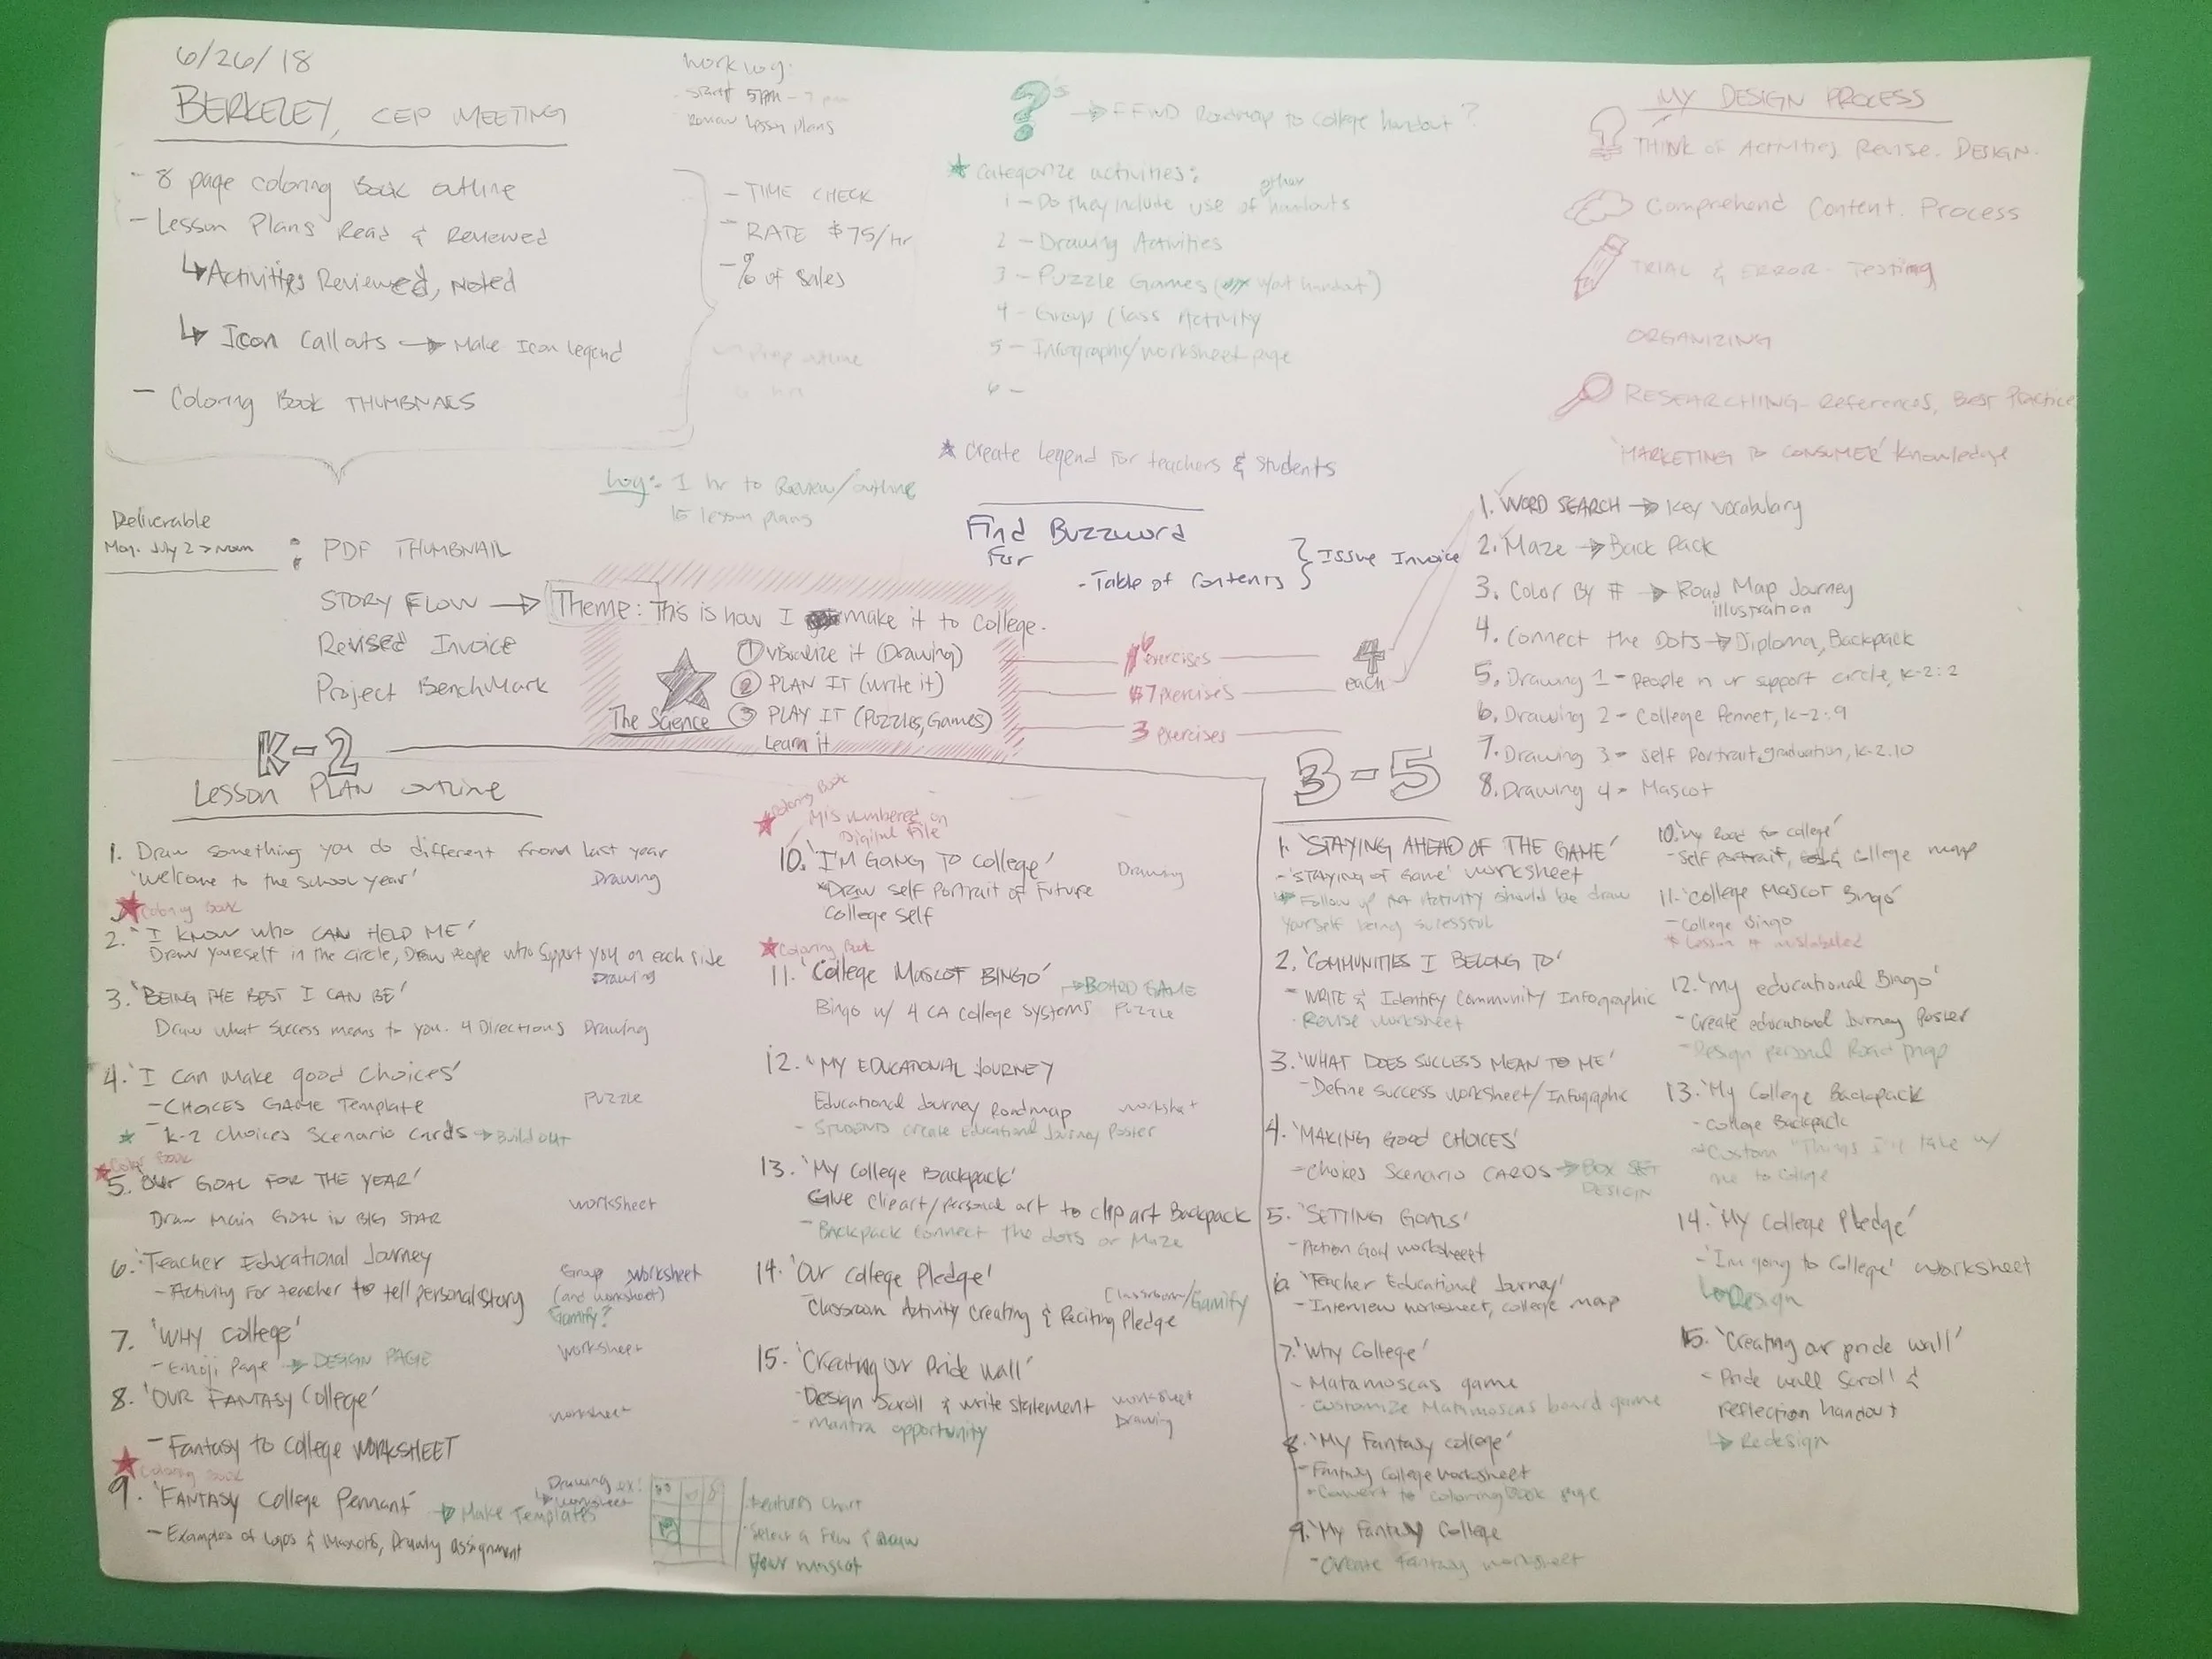 6/26/18
BERKELEY, CEP MEETING
- 8 page coloring Book outline
- Lesson Plans Read & Reviewed
↳ Activities Reviewed, Noted
↳ Icon Callouts → Make Icon legend
- Coloring Book THUMBNAILS
work log:
- start 5pm - 7 pm
- Review lesson plans
- TIME CHECK
- RATE $75/hr
- % of sales
outline
hrs
Log: 1 hr to Review/outline
15 lesson plans
?'s → FFWD Roadmap to College handout?
★ Categorize activities:
1 - Do they include use of other handouts
2 - Drawing Activities
3 - Puzzle Games (w/out handout)
4 - Group Class Activity
5 - Infographic/worksheet page
6 -
★ Create legend for teachers & students
Find Buzzword
For
- Table of Contents } Issue Invoice
MY DESIGN PROCESS
THINK of Activities. Revise. DESIGN.
Comprehend Content. Process
TRIAL & ERROR - Testing
ORGANIZING
RESEARCHING - References, Best Practice
'MARKETING to CONSUMER' Knowledge
Deliverable
Mon. July 2 > Noon
: PDF THUMBNAIL
STORY FLOW → Theme: This is how I make it to College.
Revised Invoice
Project BenchMark
The Science
① Visualize it (Drawing)
② PLAN IT (write it)
③ PLAY IT (Puzzles, Games)
Learn it
6 exercises
7 exercises
3 exercises
4
each
1. WORD SEARCH → Key vocabulary
2. Maze → Back Pack
3. Color By # → Road Map Journey
illustration
4. Connect the Dots → Diploma, Backpack
5. Drawing 1 - people n ur support circle, K-2: 2
6. Drawing 2 - College Pennet, K-2: 9
7. Drawing 3 - self portrait, graduation, K-2. 10
8. Drawing 4 - Mascot
K-2
Lesson PLAN outline
1. Draw something you do different from last year
'Welcome to the school year'
Drawing
Coloring Book
2. 'I KNOW WHO CAN HELP ME'
Draw yourself in the circle, Draw People who support you on each side
Drawing
3. 'BEING THE BEST I CAN BE'
Draw what success means to you. 4 Directions
Drawing
4. 'I can make good choices'
- CHOICES GAME Template
Puzzle
★ - K-2 Choices Scenario Cards → Build out
Color Book
5. 'OUR GOAL FOR THE YEAR'
worksheet
Draw Main GOAL in BIG STAR
6. 'Teacher Educational Journey
- Activity For teacher to tell personal story
Group worksheet
(and worksheet)
Gamify?
7. 'WHY College'
- Emoji Page → DESIGN PAGE
worksheet
8. 'OUR FANTASY College'
worksheet
- Fantasy to College WORKSHEET
Coloring Book
9. 'FANTASY College Pennant'
→ Make Templates
- Examples of Logos & Mascots, Drawing assignment
Drawing
worksheet
ex:
Features Chart
Select a Few & draw
Your mascot
Coloring Book
Misnumbered on
Digital File
10. 'I'M GOING TO College'
Draw self Portrait of Future
College Self
Drawing
Coloring Book
11. 'College Mascot BINGO'
→ BOARD GAME
Bingo w/ 4 CA College systems
Puzzle
12. 'MY EDUCATIONAL JOURNEY
Educational Journey Roadmap
worksheet
- STUDENTS create Educational Journey Poster
13. 'My College Backpack'
Glue clipart/Personal art to clip art Backpack
- Backpack connect the dots or Maze
14. 'Our College Pledge'
Classroom Activity Creating & Reciting Pledge
Classroom/Gamify
15. 'Creating our Pride wall'
- Design Scroll & write statement
- Mantra opportunity
worksheet
Drawing
3-5
1. 'STAYING AHEAD OF THE GAME'
- 'STAYING of Game' worksheet
Follow up Activity should be draw
yourself being sucessful
2. 'COMMUNITIES I BELONG TO'
- WRITE & Identify Community Infographic
- Revise worksheet
3. 'WHAT DOES SUCCESS MEAN TO ME'
- Define success worksheet/Infographic
4. 'MAKING GOOD CHOICES'
- Choices Scenario CARDS → BOX SET
DESIGN
5. 'SETTING GOALS'
- Action Goal worksheet
6. 'Teacher Educational Journey'
- Interview worksheet, college map
7. 'Why College'
- Matamoscas game
- Customize Matamoscas board game
8. 'My Fantasy College'
- Fantasy College worksheet
- Convert to coloring Book page
9. 'My Fantasy College
- Create Fantasy worksheet
10. 'My Road to College'
- Self Portrait, College map
11. 'College Mascot Bingo'
- College Bingo
* Lesson # mislabeled
12. 'My educational Bingo'
- Create educational Journey Poster
- Design personal Road map
13. 'My College Backpack
- College Backpack
- Custom "Things I'll take w/
me to College
14. 'My College Pledge'
- 'Im going to College' worksheet
↳ Design
15. 'Creating our pride wall'
- Pride wall Scroll &
reflection handout
↳ Redesign